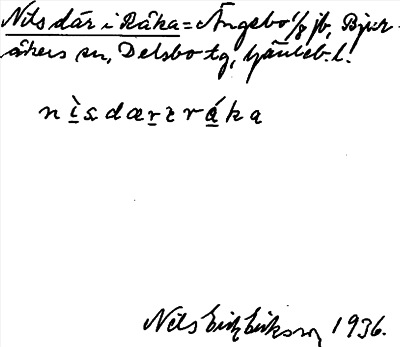 Nils där i Råka = Ängebo 1/8 jb, Bjur-
åkers sn, Delsbo tg, Gävleb. l.
nìsdærɩråka
Nils Erik Erikson 1936.